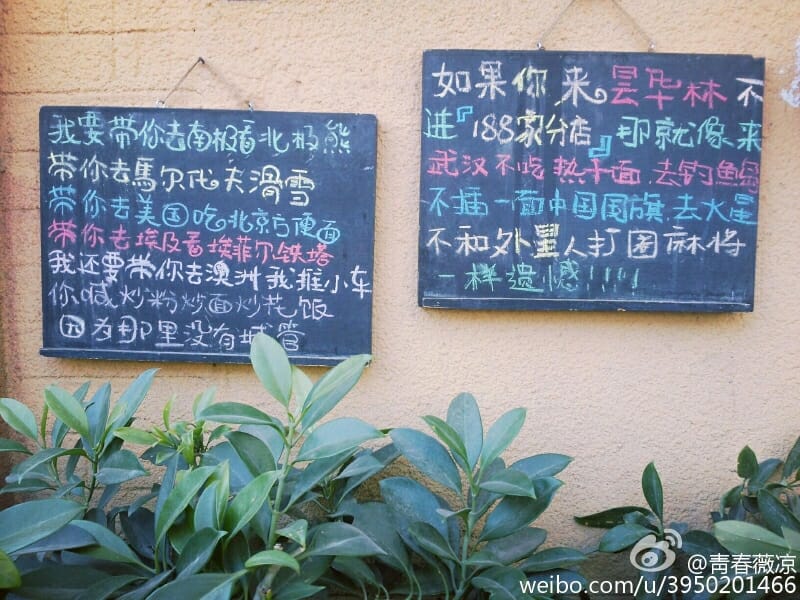 我要带你去南极看北极熊
带你去馬尔代夫滑雪
带你去美国吃北京方便面
带你去埃及看埃菲尔铁塔
我还要带你去澳洲我推小车
你喊炒粉炒面炒花饭
因为那里没有城管
如果你来昙华林不
进『188家分店』那就像来
武汉不吃热干面去钓鱼岛
不插一面中国国旗去火星
不和外星人打圈麻将
一样遗憾!!!!
@青春薇凉
weibo.com/u/3950201466